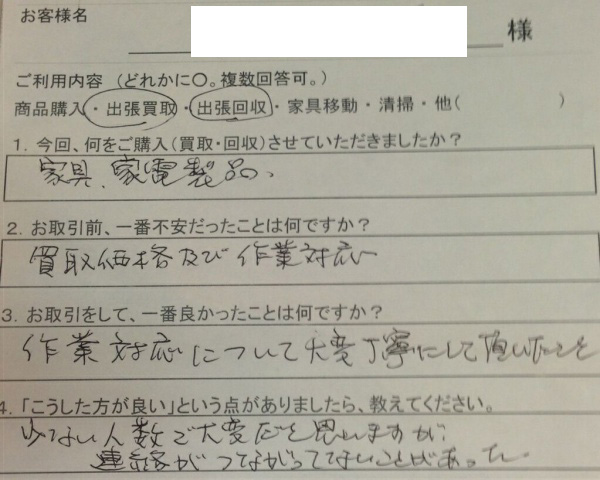 お客様名
様
ご利用内容 (どれかに○。複数回答可。)
商品購入・出張買取・出張回収・家具移動・清掃・他( )
1. 今回、何をご購入(買取・回収)させていただきましたか?
家具、家電製品、
2. お取引前、一番不安だったことは何ですか?
買取価格及び作業対応
3. お取引をして、一番良かったことは何ですか?
作業対応について大変丁寧にして頂いたこと
4. 「こうした方が良い」という点がありましたら、教えてください。
少ない人数で大変だと思いますが
連絡がつながってないことがあった